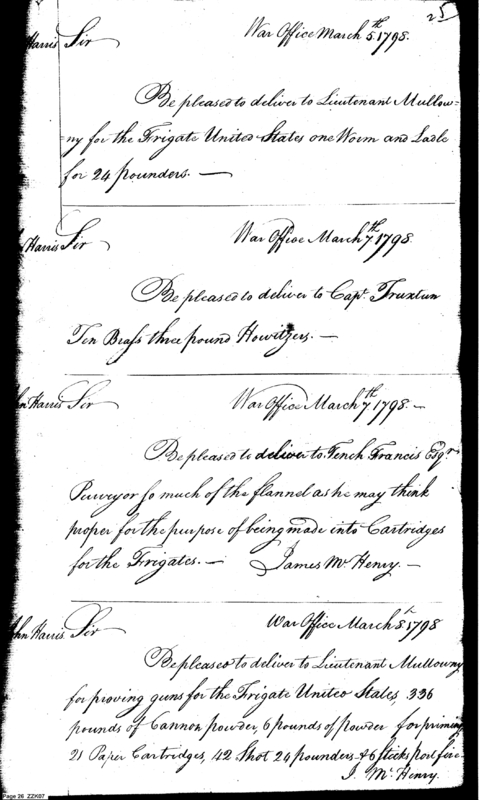 25
Harris Sir War Office March 5th 1798.
Be pleased to deliver to Lieutenant Mullow=
=ny for the Frigate United States one Worm and Ladle
for 24 pounders. —
Harris Sir War Office March 7th 1798
Be pleased to deliver to Capt. Truxtun
Ten Brass three pound Howitzers. —
hn Harris Sir War Office March 7th 1798 —
Be pleased to deliver to Tench Francis Esqr
Purveyor so much of the flannel as he may think
proper for the purpose of being made into Cartridges
for the Frigates. — James McHenry. —
ohn Harris Sir War Office March 8th 1798
Be pleased to deliver to Lieutenant Mullowny
for proving guns for the Frigate United States, 336
pounds of Cannon powder, 6 pounds of powder for priming
21 Paper Cartridges, 42 Shot 24 pounders & 6 sticks port fire
J. McHenry.
Page 26 ZZK07